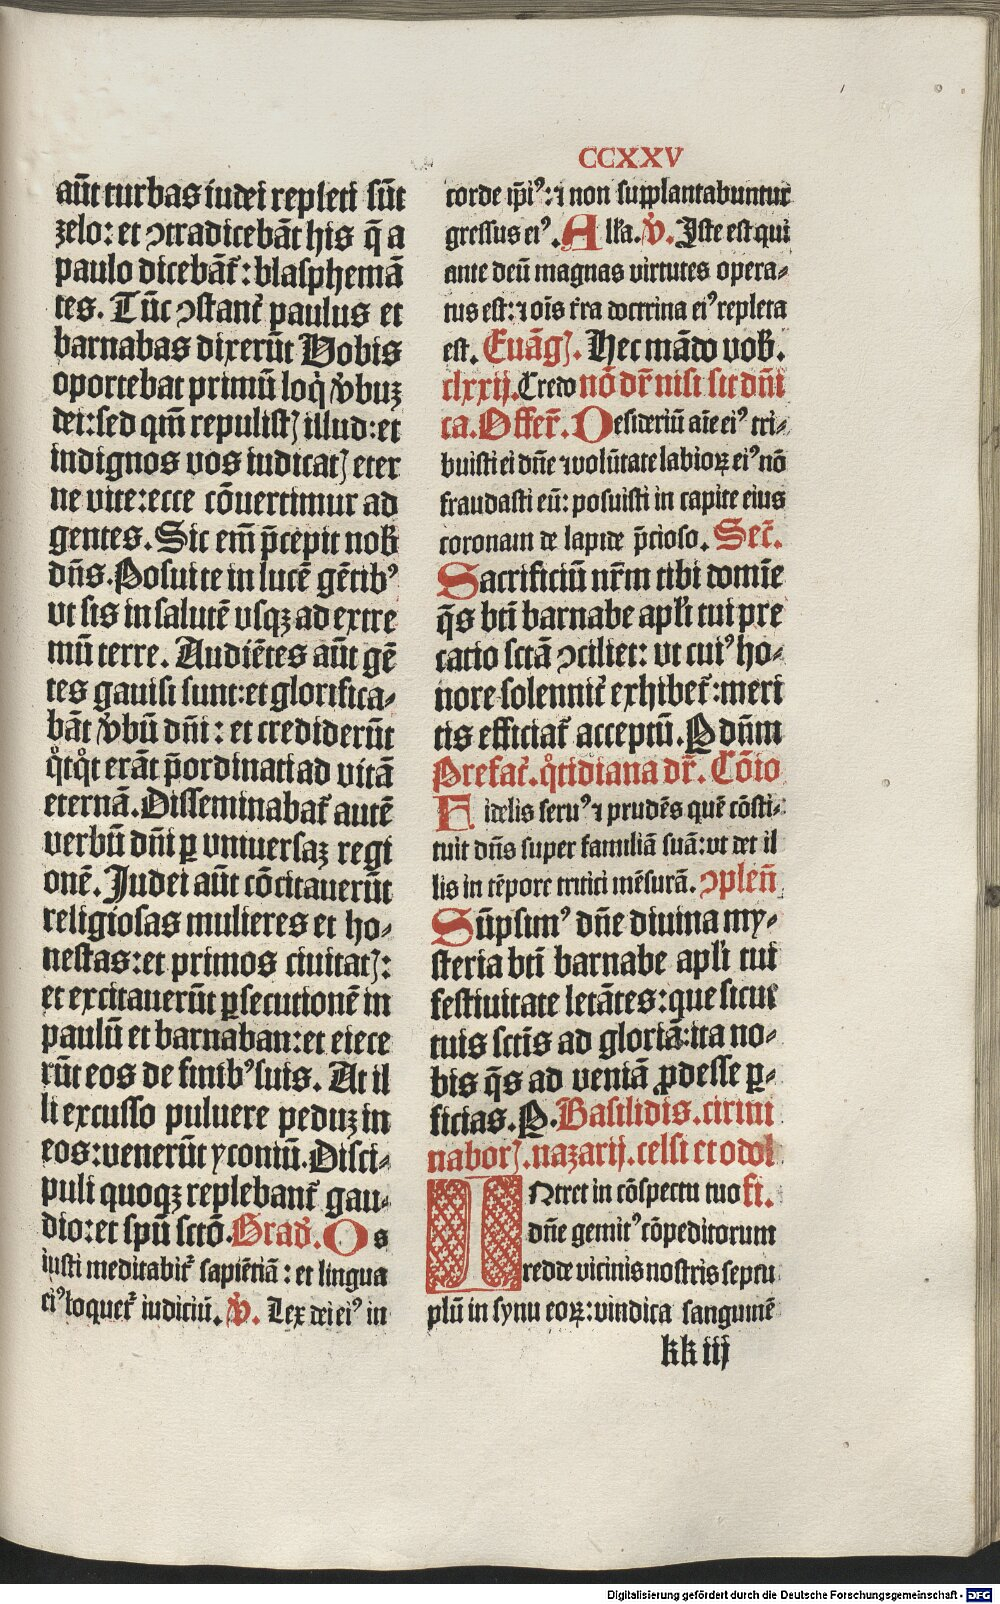 CCXXV
aūt turbas iudei repleti sūt
zelo: et ꝯtradicebāt his q̄ a
paulo dicebāt᷑: blasphemā
tes. Tūc ꝯstant᷑ paulus et
barnabas dixerūt Vobis
oportebat primū loq̇ v̄buꝫ
dei: sed qm̄ repulistꝭ illud: et
indignos vos iudicatꝭ eter
ne vite: ecce cōuertimur ad
gentes. Sic em̄ p̄cepit nob̄
dn̄s. Posui te in lucē gētibꝰ
vt sis in salutē vsqꝫ ad extre
mū terre. Audiētes aūt gē
tes gauisi sunt: et glorifica⸗
bāt v̄bū dn̄i: et crediderūt
qͦtqͦt erāt p̄ordinati ad vitā
eternā. Disseminabat᷑ autē
verbū dn̄i ꝑ vniuersaꝫ regi
onē. Iudei aūt cōcitauerūt
religiosas mulieres et ho⸗
nestas: et primos ciuitatꝭ:
et excitauerūt ꝑsecutionē in
paulū et barnaban: et eiece
rūt eos de finibꝰ suis. At il
li excusso puluere peduꝫ in
eos: venerūt yconiū. Disci⸗
puli quoqꝫ replebant᷑ gau⸗
dio: et spū sctō. Grad̄. Os
iusti meditabit᷑ sapiētiā: et lingua
eiꝰ loquet᷑ iudiciū. V̄. Lex dei eiꝰ in
corde ip̄iꝰ: ⁊ non supplantabuntur
gressus eiꝰ. All'a. V̄. Iste est qui
ante deū magnas virtutes opera⸗
tus est: ⁊ oīs t'ra doctrina eiꝰ repleta
est. Euāgꝭ. Hec mādo vob̄.
clxxij. Credo nō dr̄ nisi sit dn̄i
ca. Offer̄. Desideriū aīe eiꝰ tri⸗
buisti ei dn̄e ⁊ volūtate labioꝝ eiꝰ nō
fraudasti eū: posuisti in capite eius
coronam de lapide p̄cioso. Secr̄.
Sacrificiū nr̄m tibi domīe
q̄s bt̄i barnabe apl'i tui pre
catio sctā ꝯciliet: vt cuiꝰ ho⸗
nore solennit᷑ exhibet᷑: meri
tis efficiat᷑ acceptū. P dn̄m
Prefat᷑. qͦtidiana dr̄. Cōio
Fidelis seruꝰ ⁊ prudēs quē cōsti⸗
tuit dn̄s super familiā suā: vt det il
lis in tēpore tritici mēsurā. ꝯpleñ
Sūpsimꝰ dn̄e diuina my⸗
steria bt̄i barnabe apl'i tui
festiuitate letātes: que sicut
tuis sctīs ad gloriā: ita no⸗
bis q̄s ad veniā ꝓdesse ꝑ⸗
ficias. P. Basilidis. cirini
naborꝭ. nazarij. celsi et odol
INtret in cōspectu tuo fi.
dn̄e gemitꝰ cōpeditorum
redde vicinis nostris septu
plū in synu eoꝝ: vindica sanguinē
kk iij
Digitalisierung gefördert durch die Deutsche Forschungsgemeinschaft - DFG